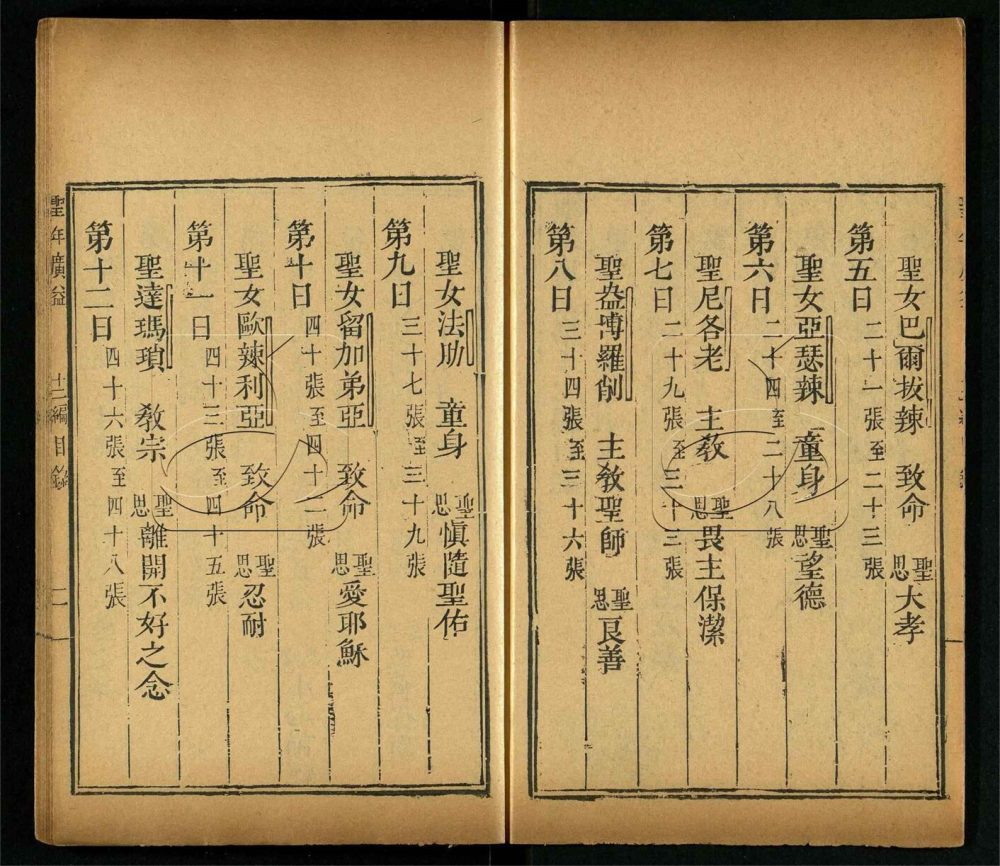 聖女巴爾拔辣 致命 聖思大孝
第五日 二十一張至二十三張
聖女亞瑟辣 童身 聖思望德
第六日 二十四至二十八張
聖尼各老 主教 聖思畏主保潔
第七日 二十九張至三十三張
聖盎博羅削 主教聖師 聖思良善
第八日 三十四張至三十六張
聖女法助 童身 聖思慎隨聖佑
第九日 三十七張至三十九張
聖女留加弟亞 致命 聖思愛耶穌
第十日 四十張至四十二張
聖女歐辣利亞 致命 聖思忍耐
第十一日 四十三張至四十五張
聖達瑪瑣 教宗 聖思離開不好之念
第十二日 四十六張至四十八張
聖年廣益 十二編目錄 二